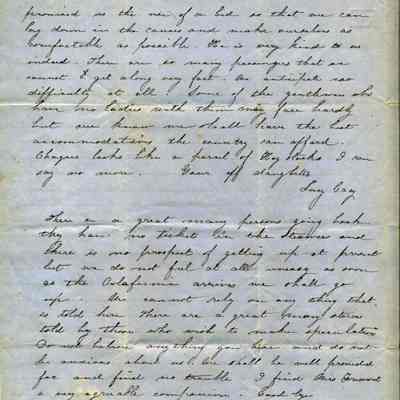 promised us the use of a bed so that we can
lay down in the canoes and make ourselves as
comfortable as possible He is very kind to us
indeed. There are so many passengers that we
cannot get along very fast. We anticipate no
difficulty at all. Some of the gentlemen who
have no ladies with them may fare hardly
but we know we shall have the best
accommodations the country can afford.
Chagres looks like a parcel of Hay stacks I can
say no more. Your aff daughter
Lucy
There are a great many persons going back
they have no ticket for the Steamer and
there is no prospect of getting up at present
but we do not feel at all uneasy as soon
as the California arrives we shall go
up. We cannot rely on any thing that
is told here There are a great many stories
told by those who wish to make speculation
Do not believe anything you hear and do not
be anxious about us. We shall be well provided
for and find no trouble I find Mrs
a very agreeable companion. Good bye